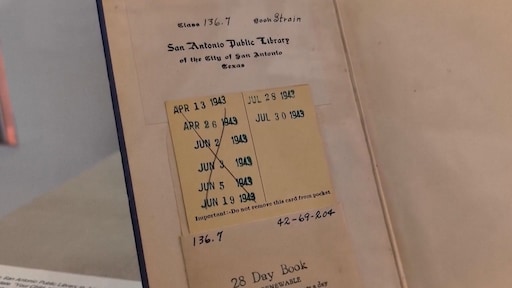 Class 136.7 Book Strain
San Antonio Public Library
of the City of San Antonio
Texas
APR 13 1943 JUL 28 1943
APR 26 1943 JUL 30 1943
JUN 2 1943
JUN 3 1943
JUN 5 1943
JUN 19 1943
Important:-Do not remove this card from pocket
136.7 42-69-204
28 Day Book
RENEWABLE
San Antonio Public Library